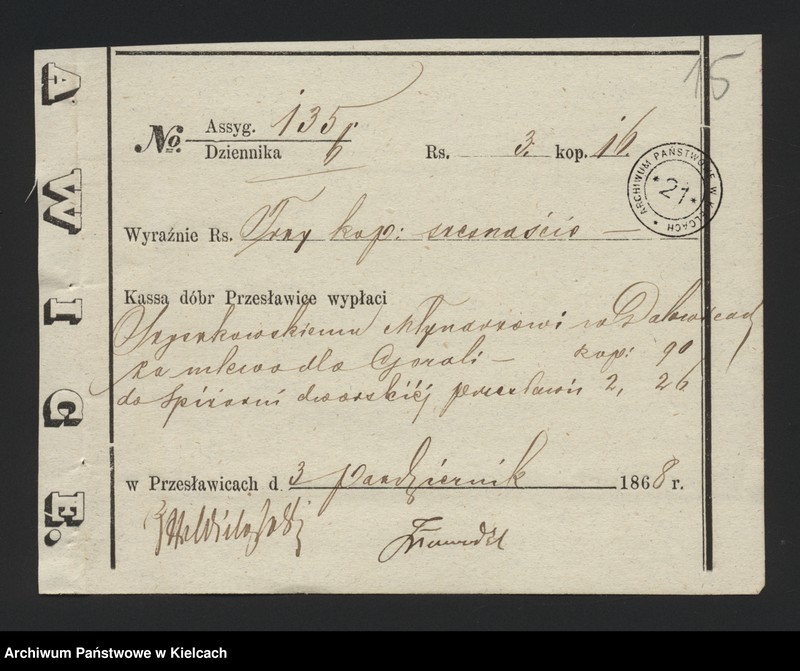 15
AWICE.
No. Assyg. 135
Dziennika 6
Rs. 3. kop. 16.
ARCHIWUM PAŃSTWOWE W KIELCACH * 21 *
Wyraźnie Rs. Trzy kop: szesnaście —
Kassa dóbr Przesławice wypłaci
Młynarzowi w
za mlewo dla Gorali — kop: 90
do Spiżarni dworskiéj 2, 26
w Przesławicach d 3 Pazdziernik 1868 r.
Archiwum Państwowe w Kielcach